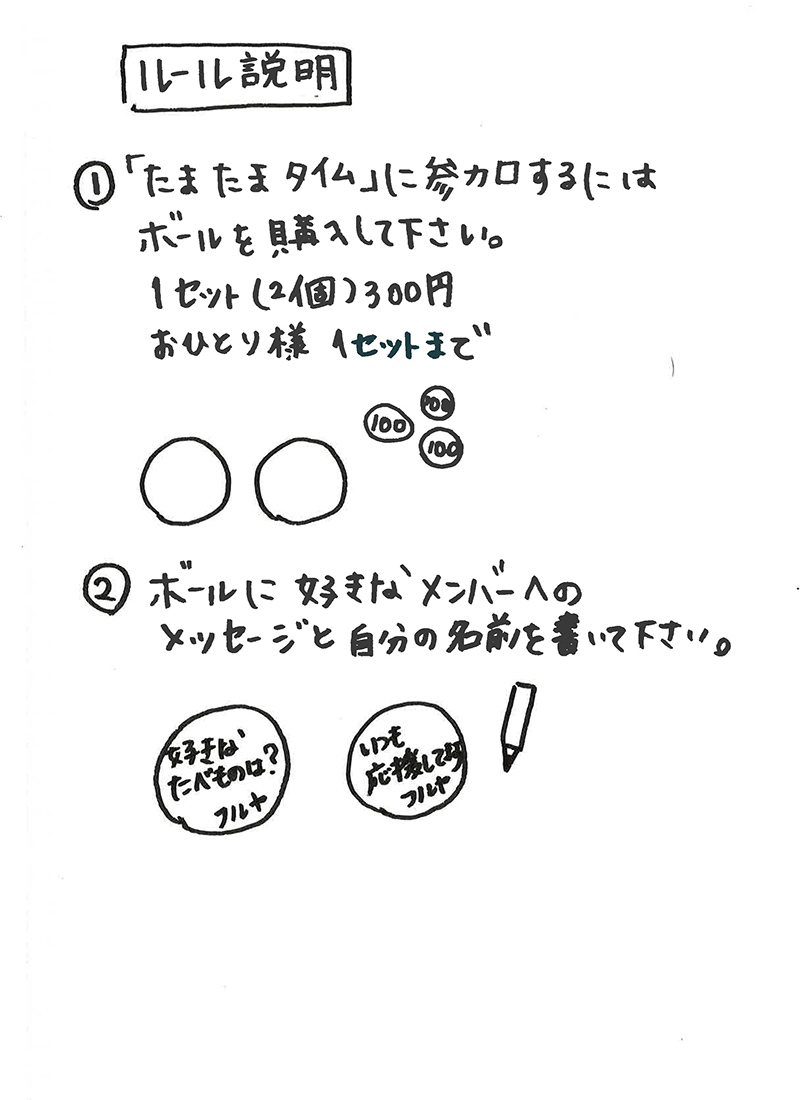 ルール説明
①「たまたまタイム」に参加するには
ボールを購入して下さい。
1セット(2個)300円
おひとり様 1セットまで
100
100
100
② ボールに好きなメンバーへの
メッセージと自分の名前を書いて下さい。
好きな
たべものは?
フルヤ
いつも
応援してます
フルヤ